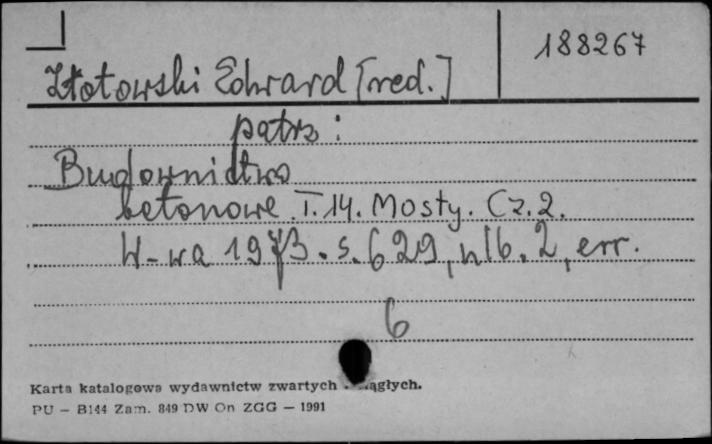 188267
Złotowski Edward [red.]
patrz:
Budownictwo
betonowe. T. 14. Mosty. Cz. 2.
W-wa 1973. s. 629, nlb. 2, err.
6
Karta katalogowa wydawnictw zwartych
PU — B144 Zam. 849 DW On ZGG — 1991